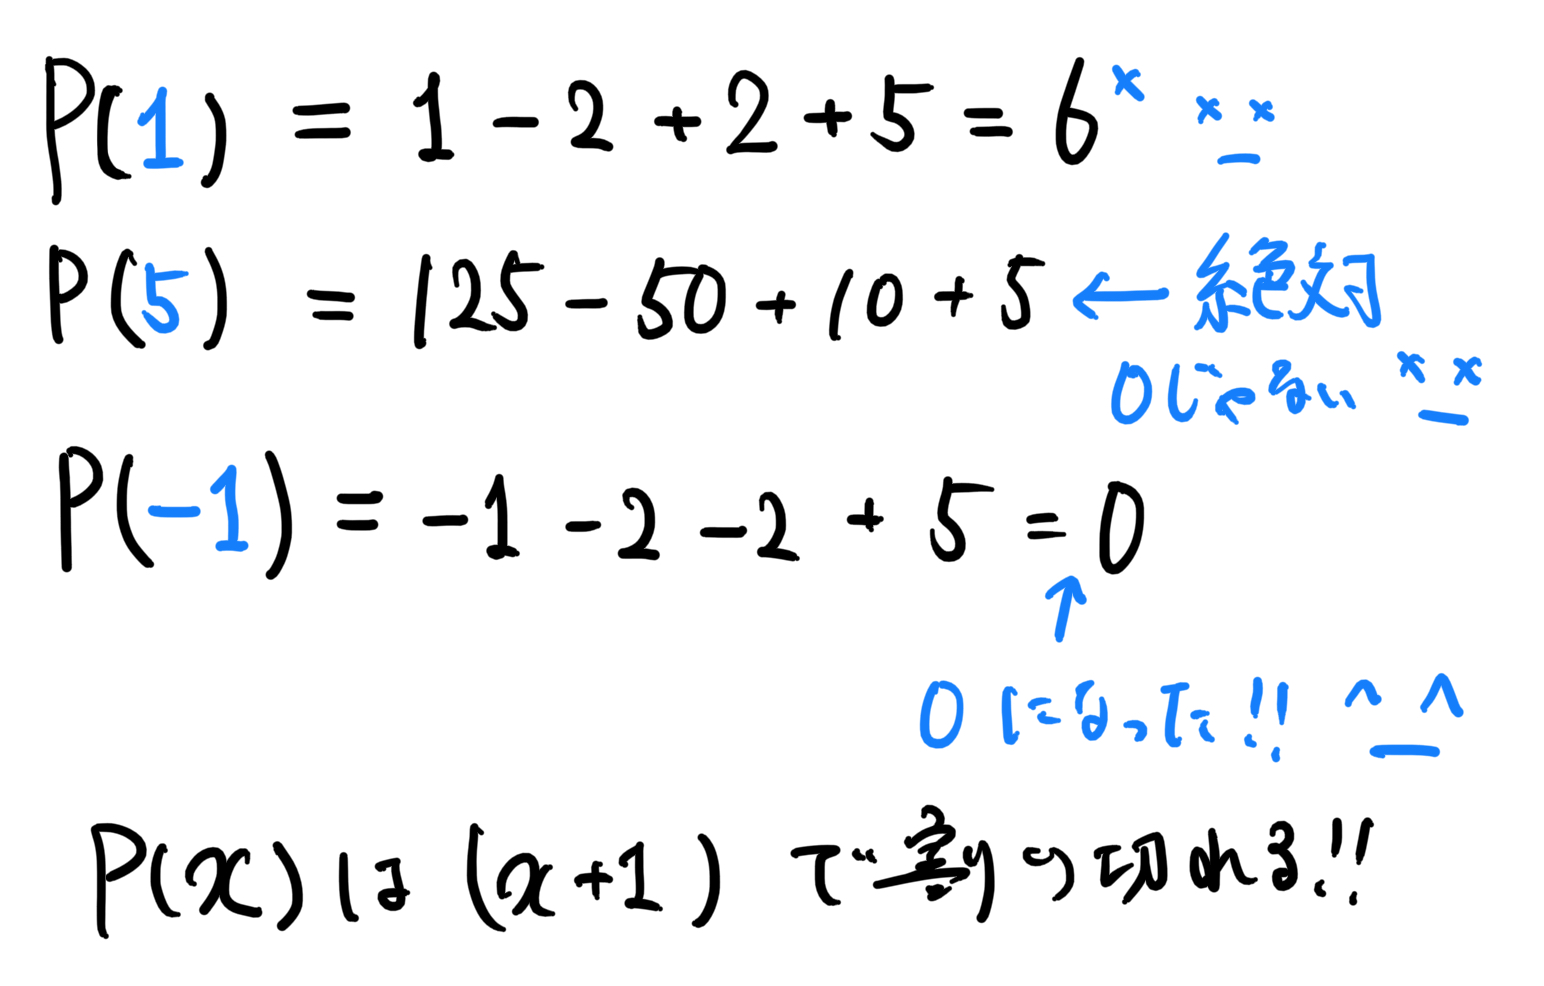 P(1) = 1 - 2 + 2 + 5 = 6 ˣ x_x
P(5) = 125 - 50 + 10 + 5 ← 絶対
0じゃない x_x
P(-1) = -1 - 2 - 2 + 5 = 0
↑
0になった!! ^_^
P(x)は(x+1)で割り切れる!!